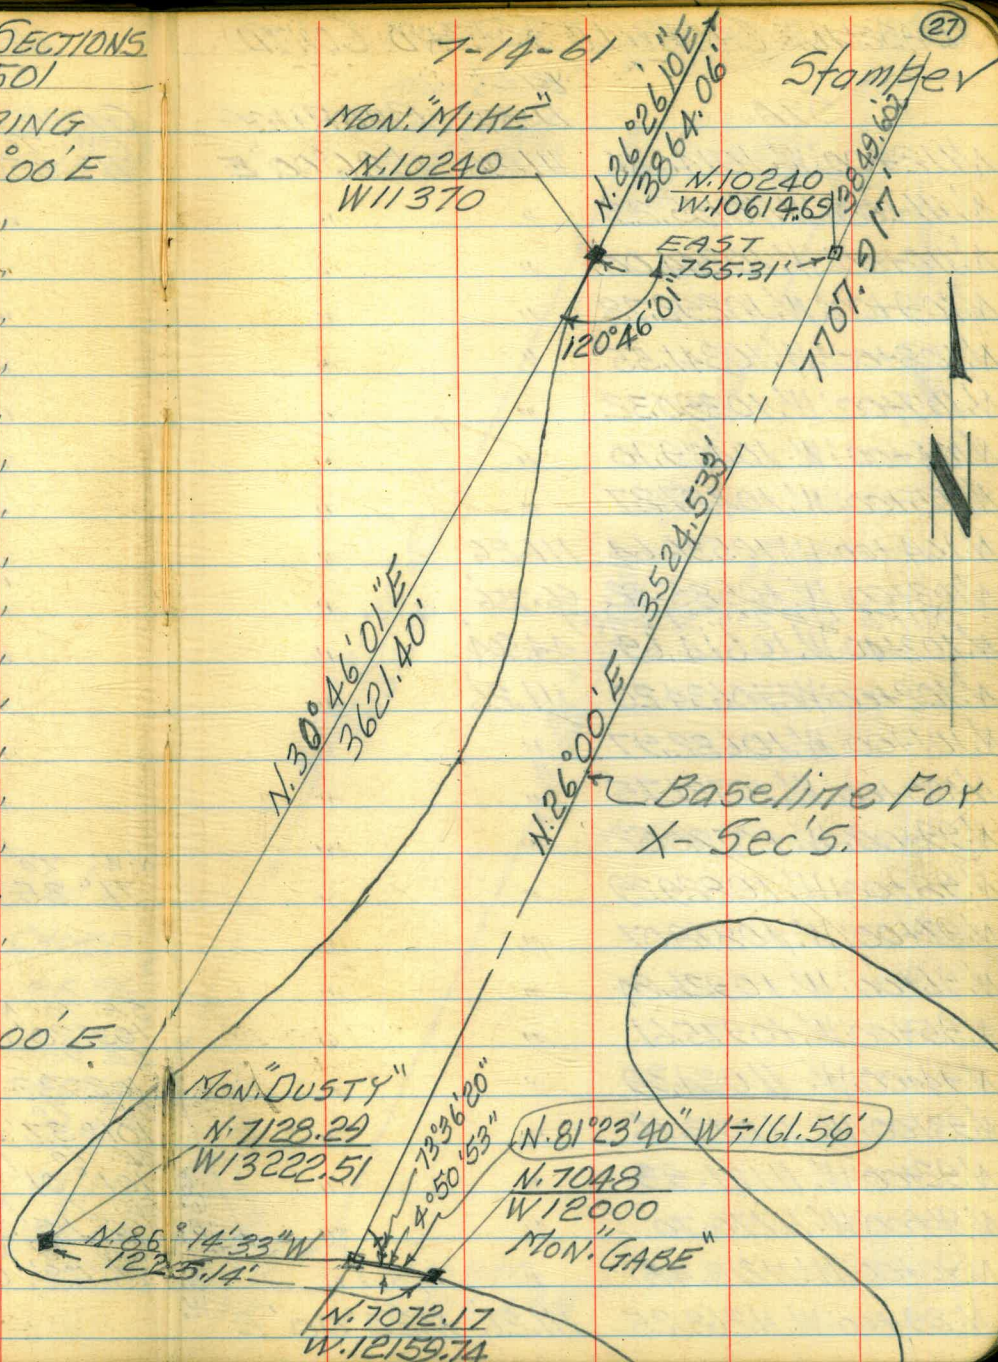 SECTIONS
501
RING
°00'E
00'E
27
7-14-61
Stamper
MON. "MIKE"
N.10240
W11370
N.26°26'10"E
3864.06'
N.10240
W.10614.69
3849.602'
7707.917'
EAST
755.31'
120°46'01"
N
N.30°46'01"E
3621.40'
3524.533'
N.26°00'E
Baseline For
X-Sec's.
MON. "DUSTY"
N.7128.29
W13222.51
73°36'20"
4°50'53"
N.81°23'40"W-161.56'
N.7048
W12000
MON. "GABE"
N.86°14'33"W
1225.14'
N.7072.17
W.12159.74